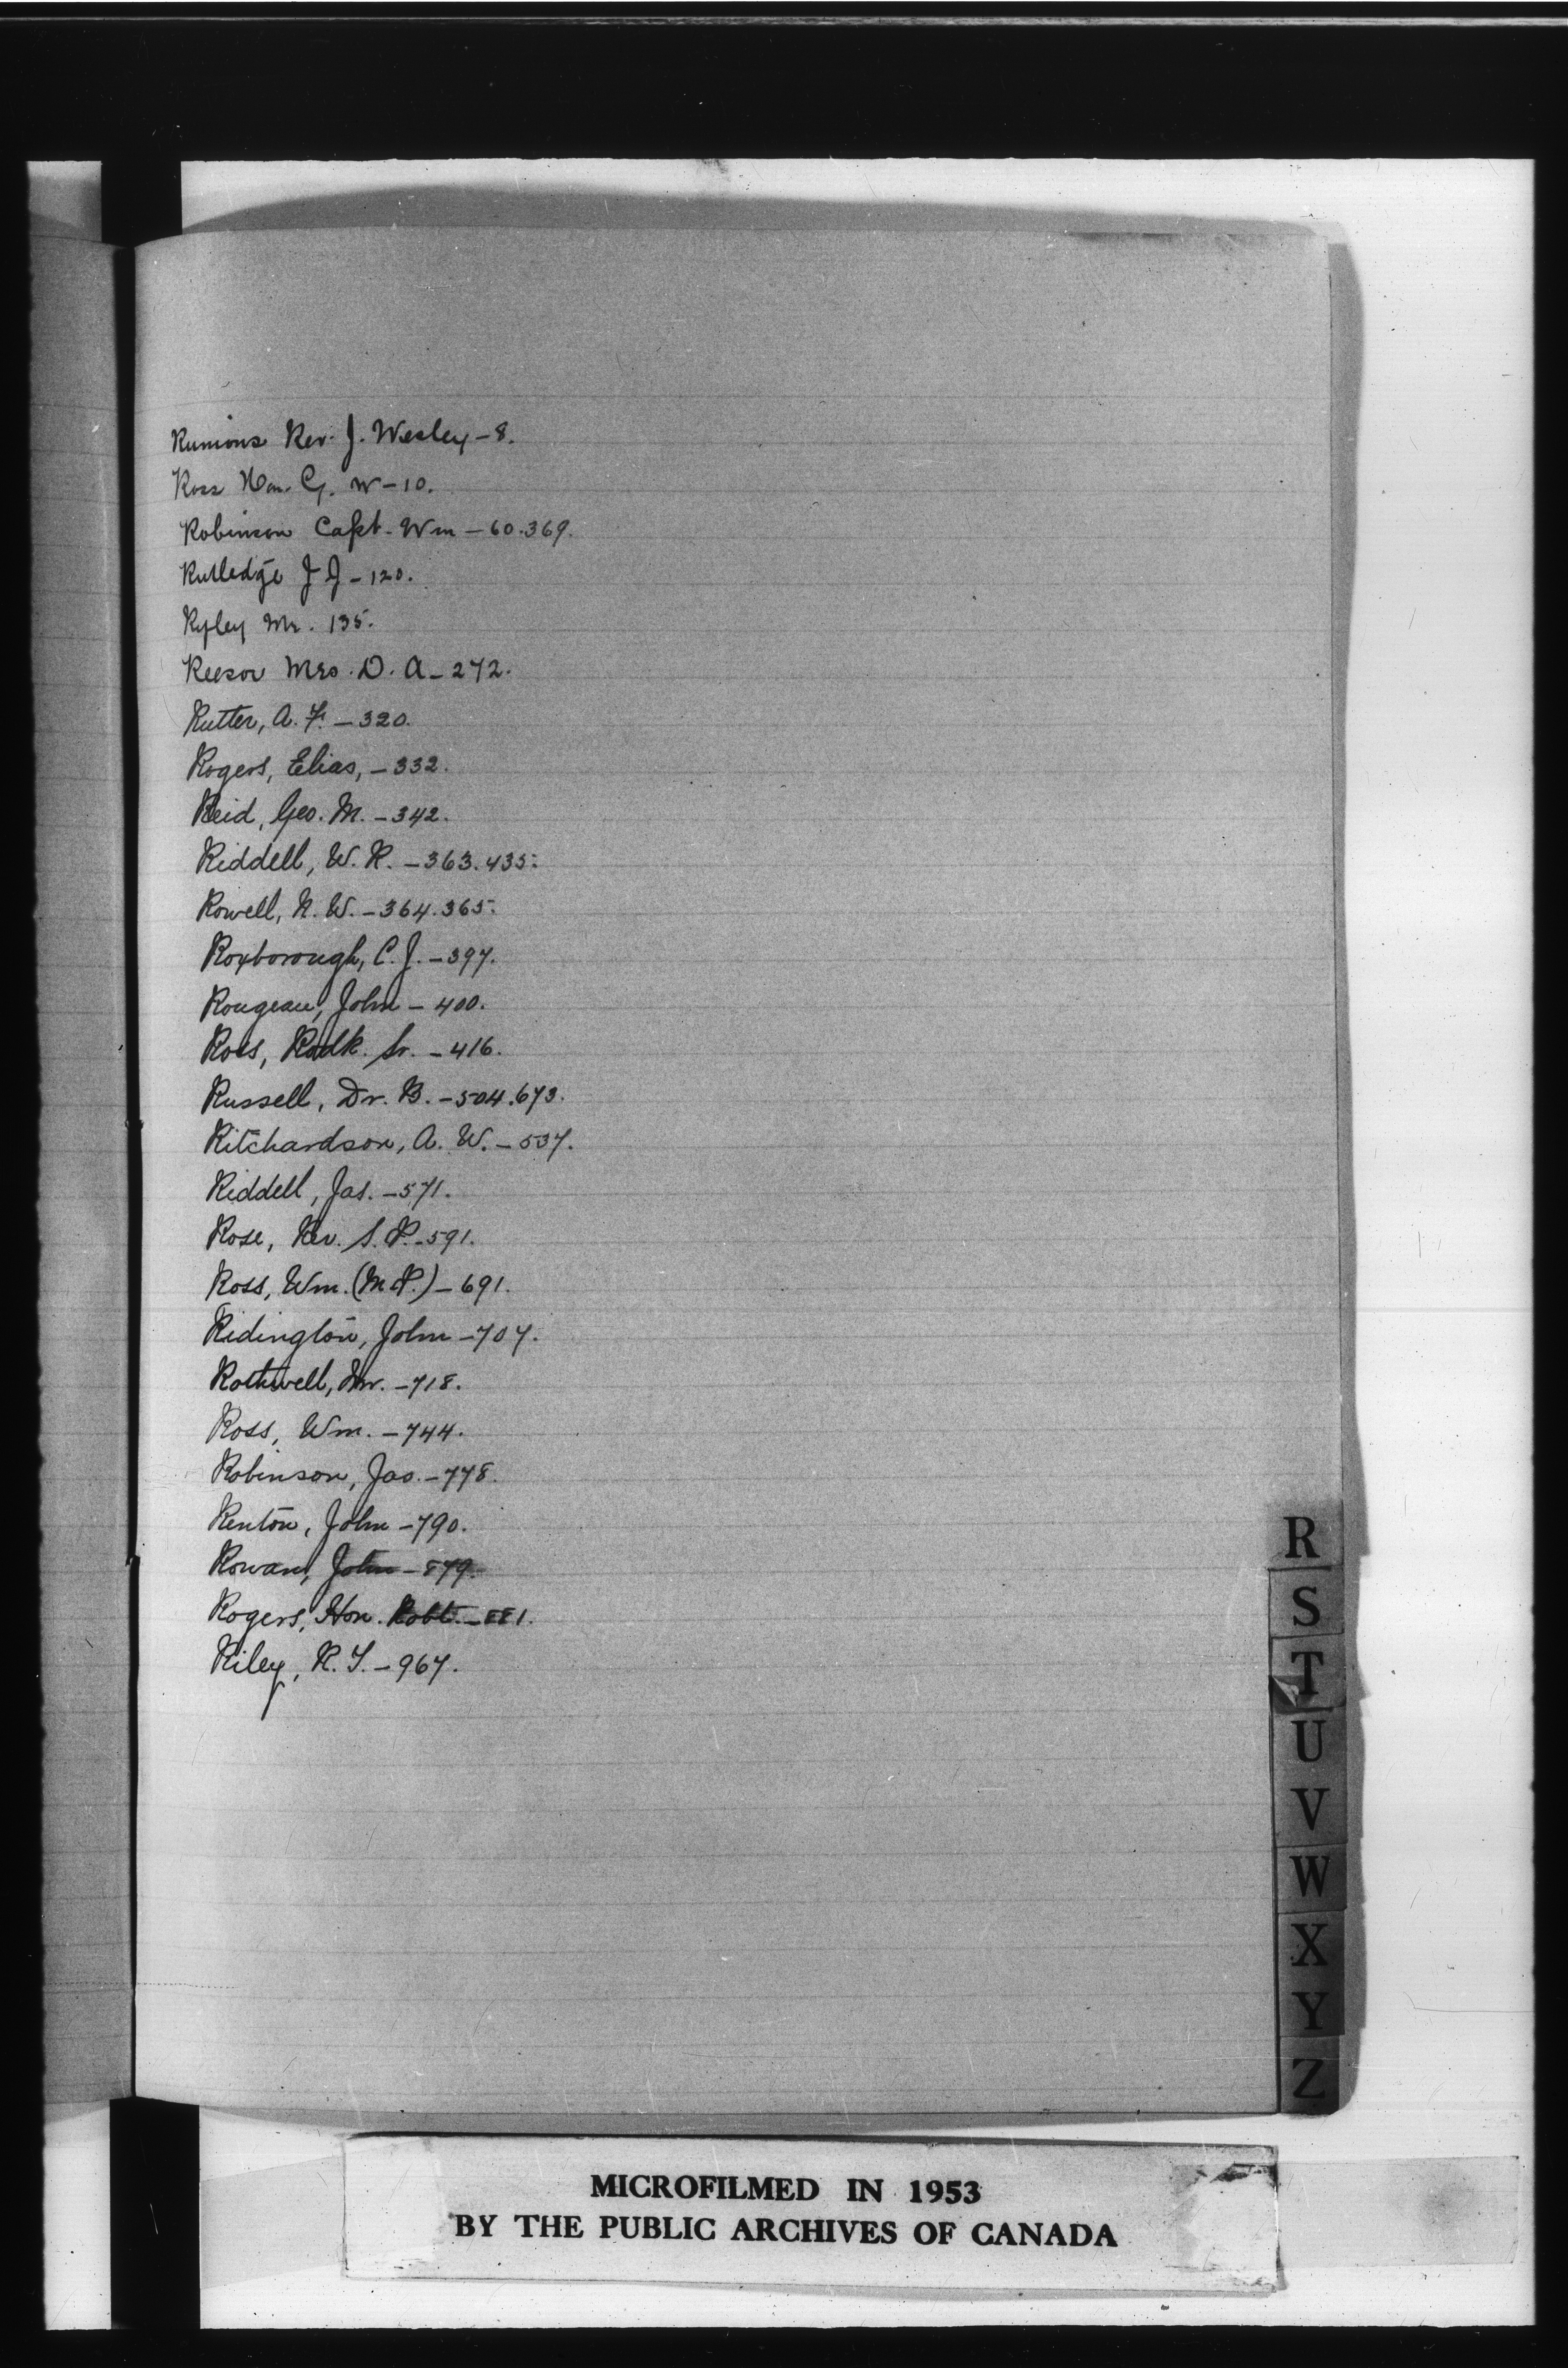 Runions Rev. J. Wesley - 8.
Ross Hon. G. W - 10.
Robinson Capt. Wm - 60.369.
Rutledge J J - 120.
Ryley Mr. 135.
Reesor Mrs. D. A - 272.
Rutter, A. F. - 320.
Rogers, Elias, - 332.
Reid, Geo. M. - 342.
Riddell, W. R. - 363.435.
Rowell, N. W. - 364.365.
Roxborough, C. J. - 397.
Rougeau, John - 400.
Ross, Rodk. Sr. - 416.
Russell, Dr. B. - 504.673.
Ritchardson, A. W. - 537.
Riddell, Jas. - 571.
Rose, Rev. S. P. - 591.
Ross, Wm. (M.P.) - 691.
Ridington, John - 707.
Rothwell, Mr. - 718.
Ross, Wm. - 744.
Robinson, Jas. - 778.
Renton, John - 790.
Rowan, John - 879.
Rogers, Hon. Robt. - 881.
Riley, R. T. - 967.
R
S
T
U
V
W
X
Y
Z
MICROFILMED IN 1953
BY THE PUBLIC ARCHIVES OF CANADA